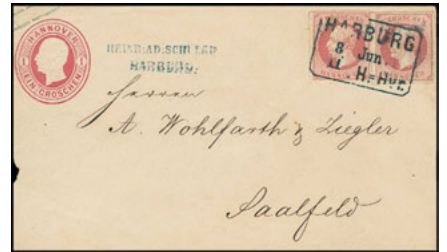 HANNOVER
1 1
EIN GROSCHEN
HEINR. AD. SCHULER
HARBURG.
HARBURG
8 Jun.
11 H=Hvr.
Herren
A. Wohlfarth & Ziegler
Saalfeld